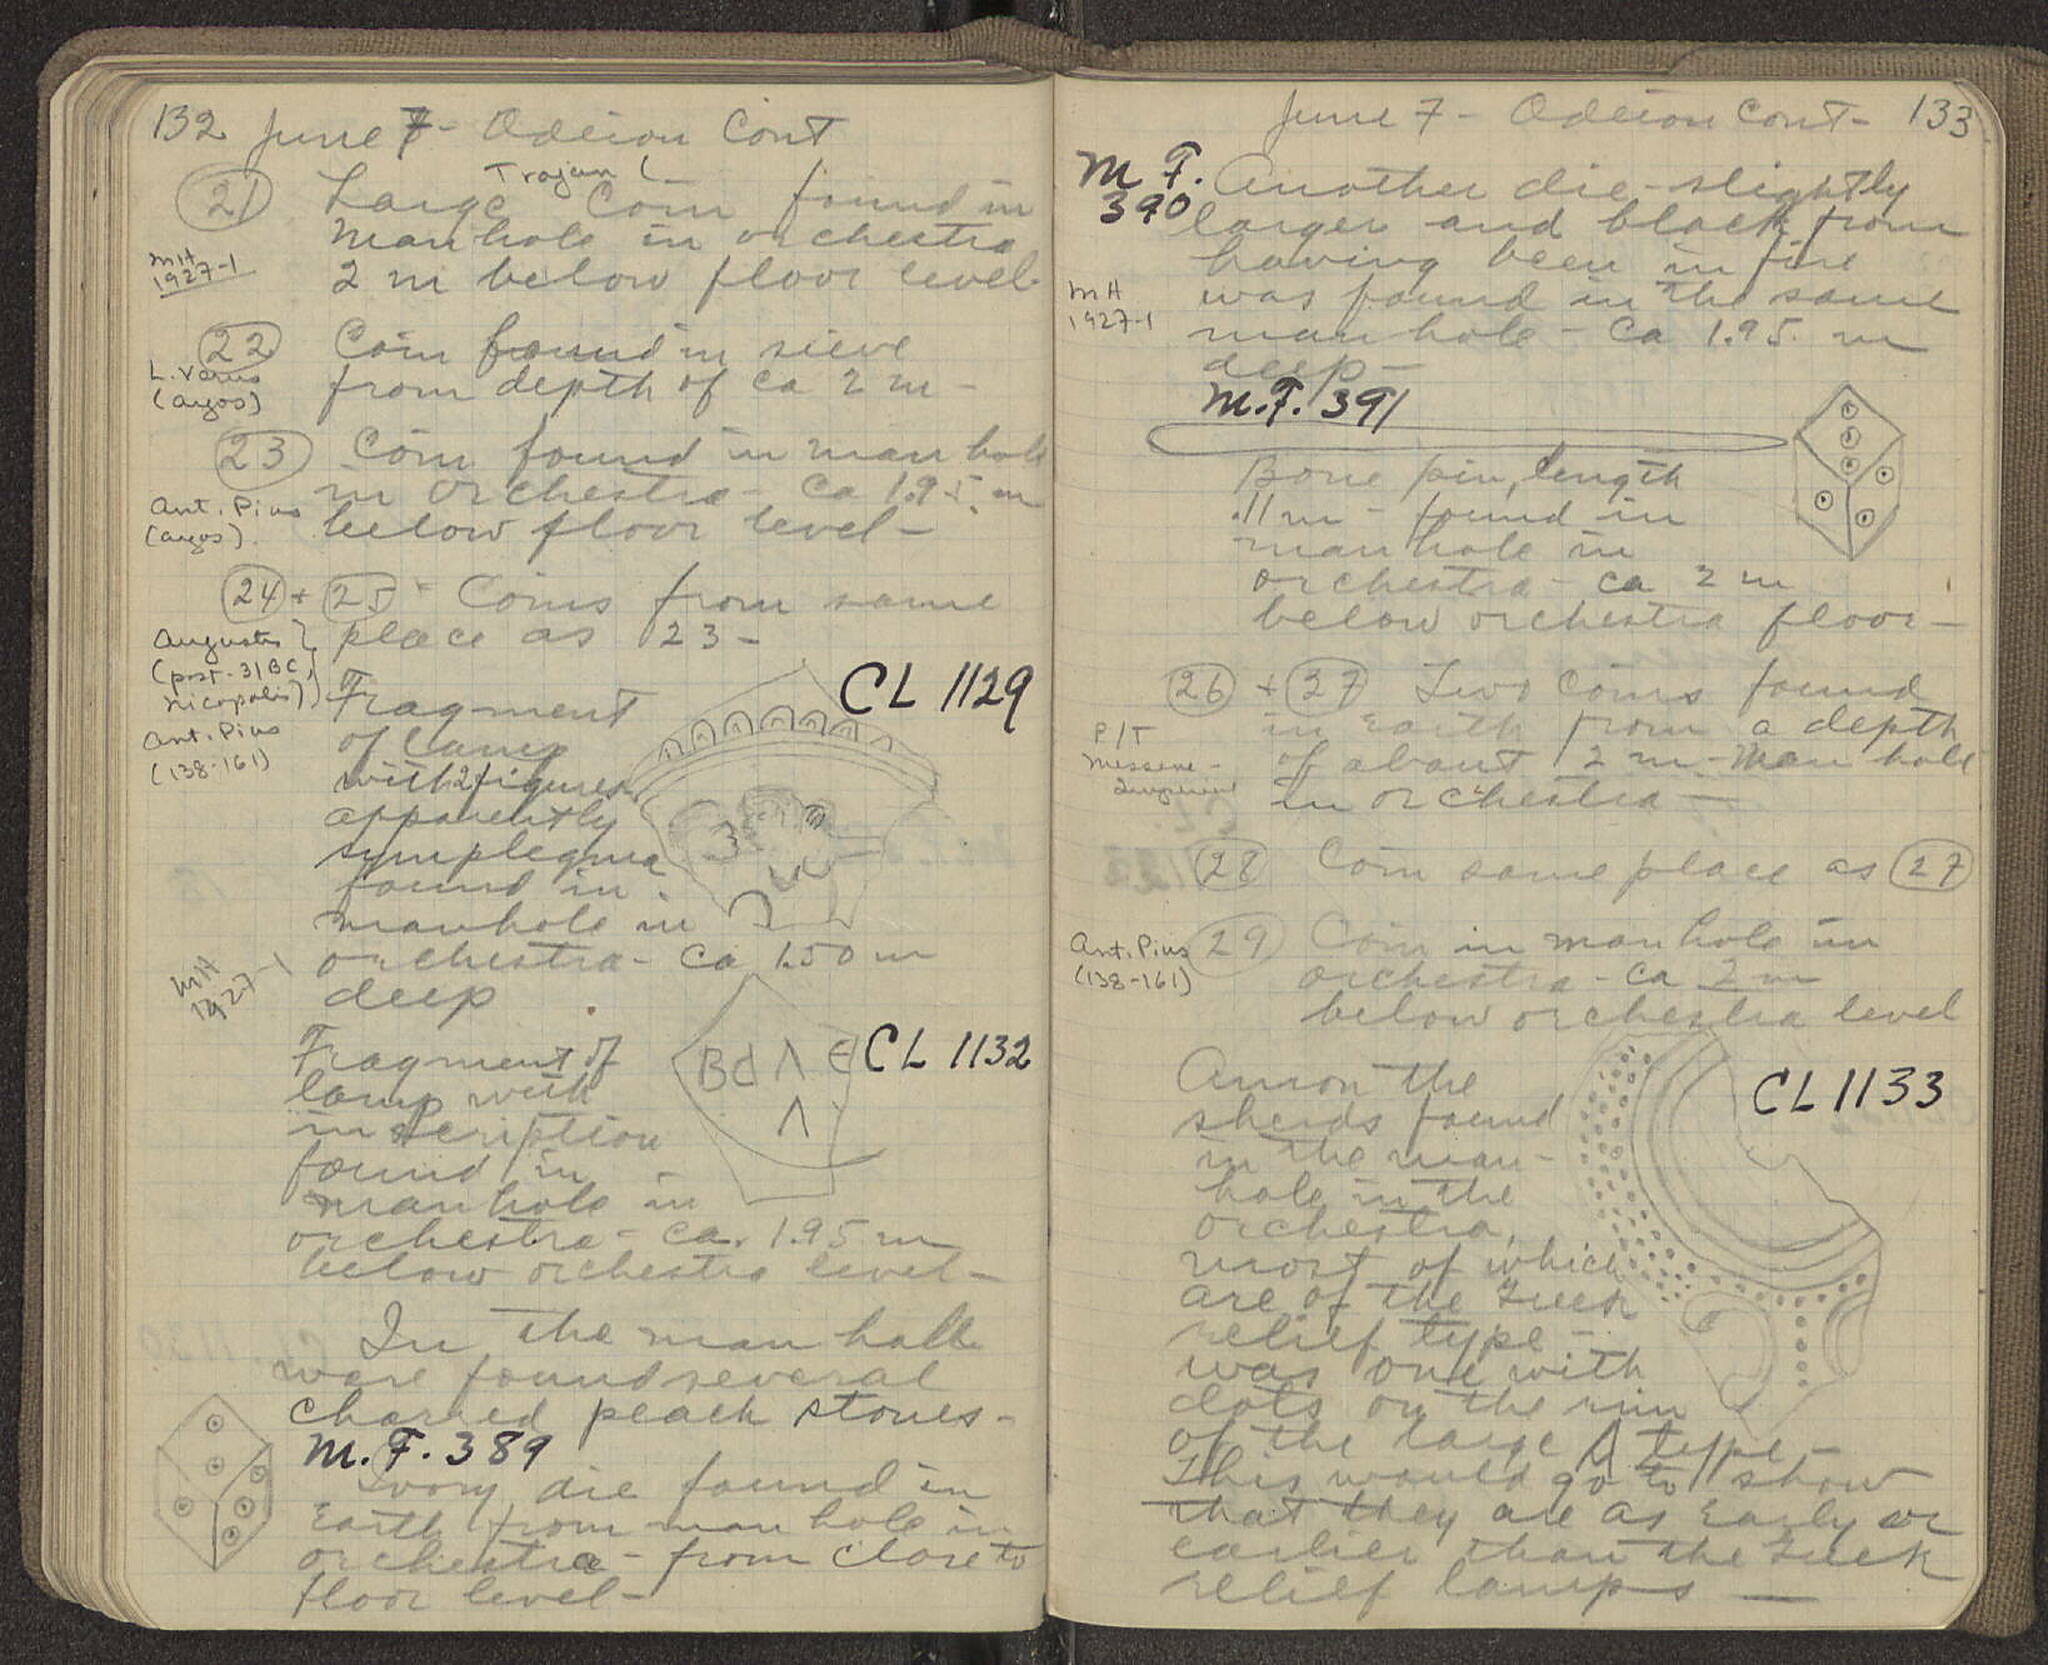 132 June 7 - Odeion Cont
Trajan (
21 Large Coin found in
manhole in orchestra
MH
1927-1
2 m below floor level-
22 Coin found in sieve
L. Verus
(Argos)
from depth of ca 2 m -
23 Coin found in man hole
in orchestra - ca 1.95 m
Ant. Pius
(Argos)
below floor level -
24 + 25 - Coins from same
place as 23 -
Augustus }
(post-31BC,
Nicopolis))
Ant. Pius
(138-161)
CL 1129
Fragment
of lamp
with 2 figures
apparently
symplegma
found in
manhole in
orchestra - ca 1.50 m
deep
MH
1927-1
CL 1132
Fragment of
lamp with
inscription
found in
manhole in
orchestra - ca. 1.95 m
below orchestra level -
In the man hole
were found several
charred peach stones -
M.F. 389
Ivory die found in
earth from man hole in
orchestra - from close to
floor level -
June 7 - Odeion Cont - 133
M F.
390
Another die - slightly
larger and black from
having been in fire
MH
1927-1
was found in the same
man hole - ca 1.95 m
deep -
M.F. 391
Bone pin, length
.11 m - found in
man hole in
orchestra - ca 2 m
below orchestra floor -
26 + 27 Two coins found
in earth from a depth
P/T
Messene -
of about 2 m - Man hole
in orchestra -
28 Coin same place as 27
29 Coin in man hole in
Ant. Pius
(138-161)
orchestra - ca 2 m
below orchestra level
CL 1133
Amon the
sherds found
in the man-
hole in the
orchestra,
most of which
are of the Greek
relief type -
was one with
dots on the rim
of the large type -
This would go to show
that they are as early or
earlier than the Greek
relief lamps -